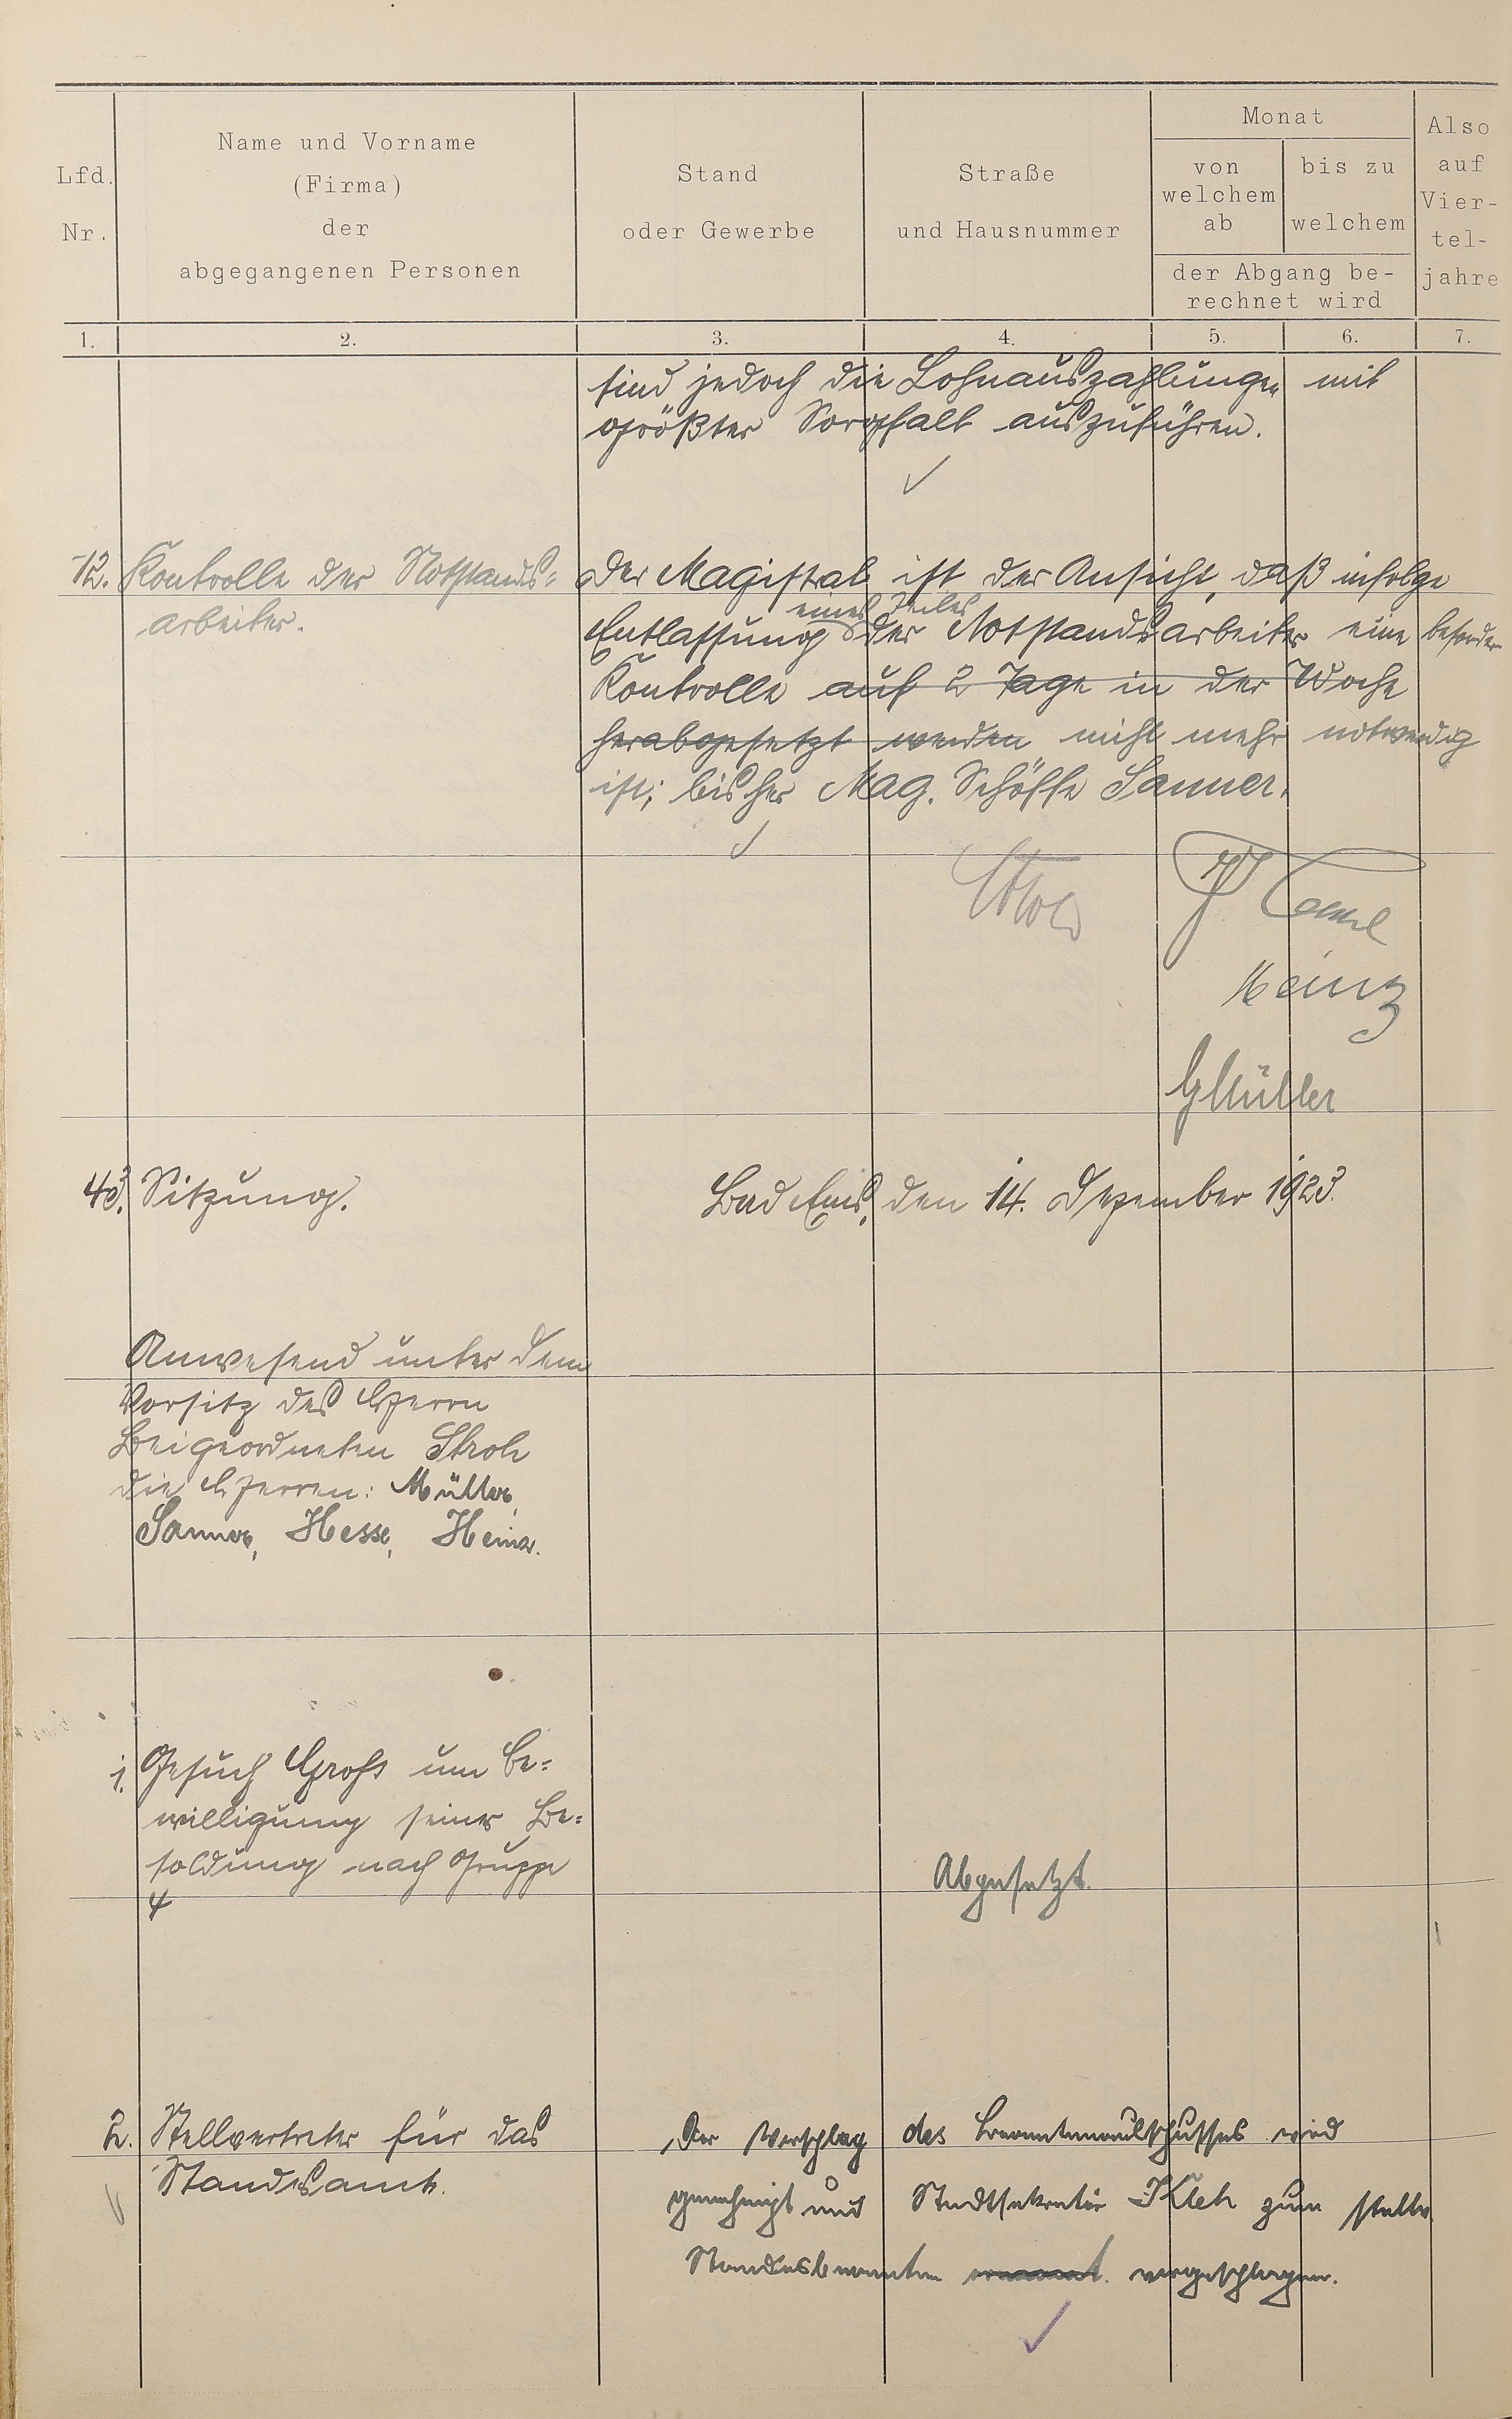 Lfd. Nr.
Name und Vorname
(Firma)
der
abgegangenen Personen
Stand
oder Gewerbe
Straße
und Hausnummer
Monat
von
welchem
ab
bis zu
welchem
der Abgang be-
rechnet wird
Also
auf
Vier-
tel-
jahre
1. 2. 3. 4. 5. 6. 7.
sind jedoch die Lohnauszahlungen mit
größter Sorgfalt auszuführen.
12. Kontrolle der Notstands=
arbeiter.
Der Magistrat ist der Ansicht, daß infolge
eines Teiles
Entlassung der Notstandsarbeiter eine besondere
Kontrolle auf 2 Tage in der Woche
herabgesetzt werden nicht mehr notwendig
ist; bisher Mag. Schöffe Sanner.
Stroh
Heinz
GMüller
43. Sitzung.
Bad Ems, den 14. Dezember 1923.
Anwesend unter dem
Vorsitz des Herrn
Beigeordneten Stroh
die Herren: Müller,
Sanner, Hesse, Heinz.
1. Gesuch Groß um Be=
willigung seiner Be=
soldung nach Gruppe
4
Abgesetzt.
2. Stellvertreter für das
Standesamt.
Der Vorschlag des Beamtenausschusses wird
genehmigt und Stadtsekretär Kleh zum stellv
Standesbeamten ernannt. vorgeschlagen.